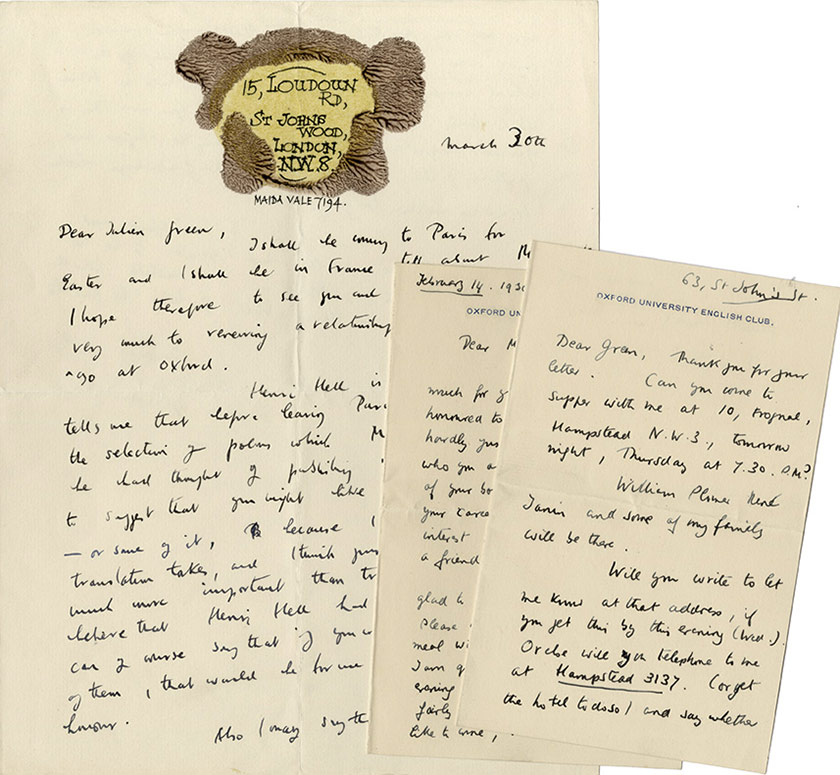 15, LOUDOUN
RD,
ST JOHNS
WOOD,
LONDON,
N.W.8.
MAIDA VALE 7194.
March 30th
Dear Julien Green,
I shall be coming to Paris for
Easter and I shall be in France till about M
I hope therefore to see you and
very much to renewing a relationship
ago at Oxford.
Henri Hell is
tells me that before leaving Pari
the selection of poems which M
he had thought of publishing
to suggest that you might like
— or some of it, because I
translation takes, and I think
much more important than tr
believe that Henri Hell had
can of course say that if you
of them, that would be for me
honour.
Also I may say th
February 14. 193
OXFORD UN
Dear M
much for y
honoured to
hardly
who you a
of your bo
your
interest
a friend
glad
Please
meal wi
I am
evening
fairly
like to come,
63, St John's St.
OXFORD UNIVERSITY ENGLISH CLUB.
Dear Green, Thank you for your
letter. Can you come to
supper with me at 10, Frognal,
Hampstead N.W.3., tomorrow
night, Thursday at 7.30. P.M?
William Plomer René
Janin and some of my family
will be there.
Will you write to let
me know at that address, if
you get this by this evening (Wed.).
Or else will you telephone to me
at Hampstead 3137. (or get
the hotel to do so) and say whether